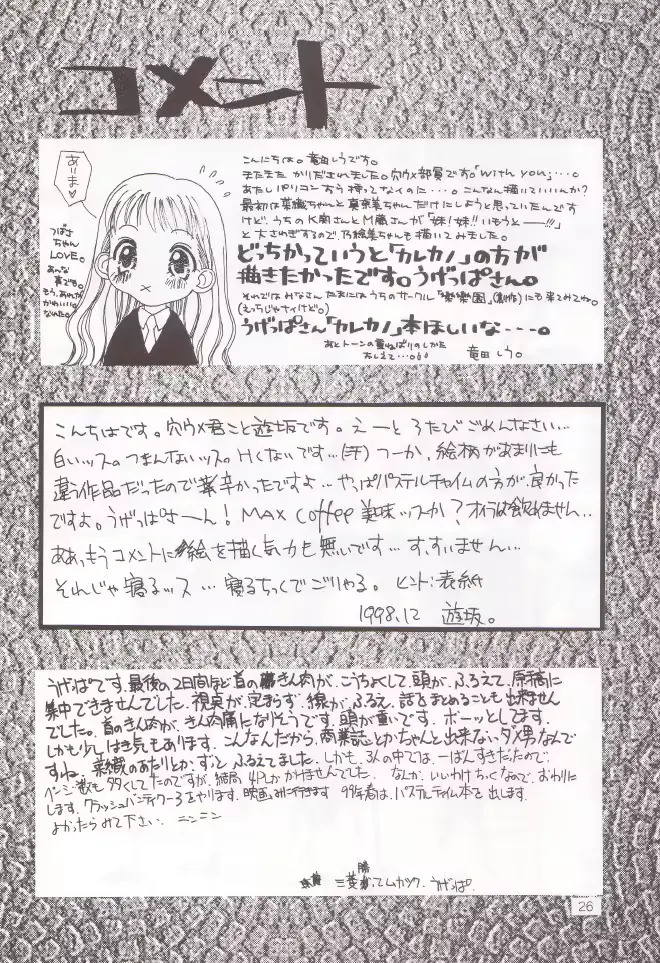 コメント
ありま♡
つばさ
ちゃん
LOVE。
あんな
事でも。
もう、あれが
かわいい
なれた。
こんにちは。竜田しうです。
またまた かりだされました。穴ウメ部員です。「with you」・・・。
あたしパソコンすら持ってなくのに・・・。こんなん描いていいんか?
最初は菜織ちゃんと真奈美ちゃんだけにしようと思っていたんです
けど、うちのK南さんとM蔵さんが「妹!妹!!いもうとーー!!!」
と大さわぎするので、乃絵美ちゃんも描いてみました。
どっちかっていうと「カレカノ」の方が
描きたかったです。うげっぱさん。
それではみなさん たまにはうちのサークル「楽園」(創作)にも来てみてね。
(えっちじゃナイけど。)
うげっぱさん「カレカノ」本ほしいな---。
あとトーンの重ねばりのしかた
おしえて・・・。
竜田しう。
こんちはです。穴ウメ君こと遊坂です。えーと ろたび ごめんなさい…
白いッス。つまんないッス。Hくないです…(汗)つーか、絵柄があまりにも
違う作品だったので辛かったですよ…やっぱパステルチャイムの方が、良かった
ですよ。うげっぱさーん! MAX Coffee 美味ッスか?オイラは飲めません…
ああっもうコメントに絵を描く気力も無いです…す、すいません…
そんじゃ寝るッス…寝るちっくでごりゃる。 ヒント:表紙
1998.12 遊坂。
うげっぱです。最後の2日間ほど首のきん肉が、こうちょくして、頭が、ふるえて、原稿に
集中できませんでした。視点が定まらず、線が、ふるえ、話をまとめることも出来ません
でした。首のきん肉が、きん肉痛になりそうです。頭が重いです。ボーッとしてます。
しかも少しはき気もあります。こんなんだから、商業誌とかちゃんと出来ないダメ男なんで
すね。菜織のあたりとか、ずっとふるえてました。しかも、3人の中では、一ばんすきだたので、
ページ数も多くしてたのですが、結局、4Pしかかけませんでした。なんか、いいわけちっくなので、おわりに
します。クラッシュバンディクー3をやります。映画みに行きます。99年春は、パステルチャイム本を出します。
よかったらみて下さい。 ニンニン
三菱 勝ってムカツク。うげっぱ.
26